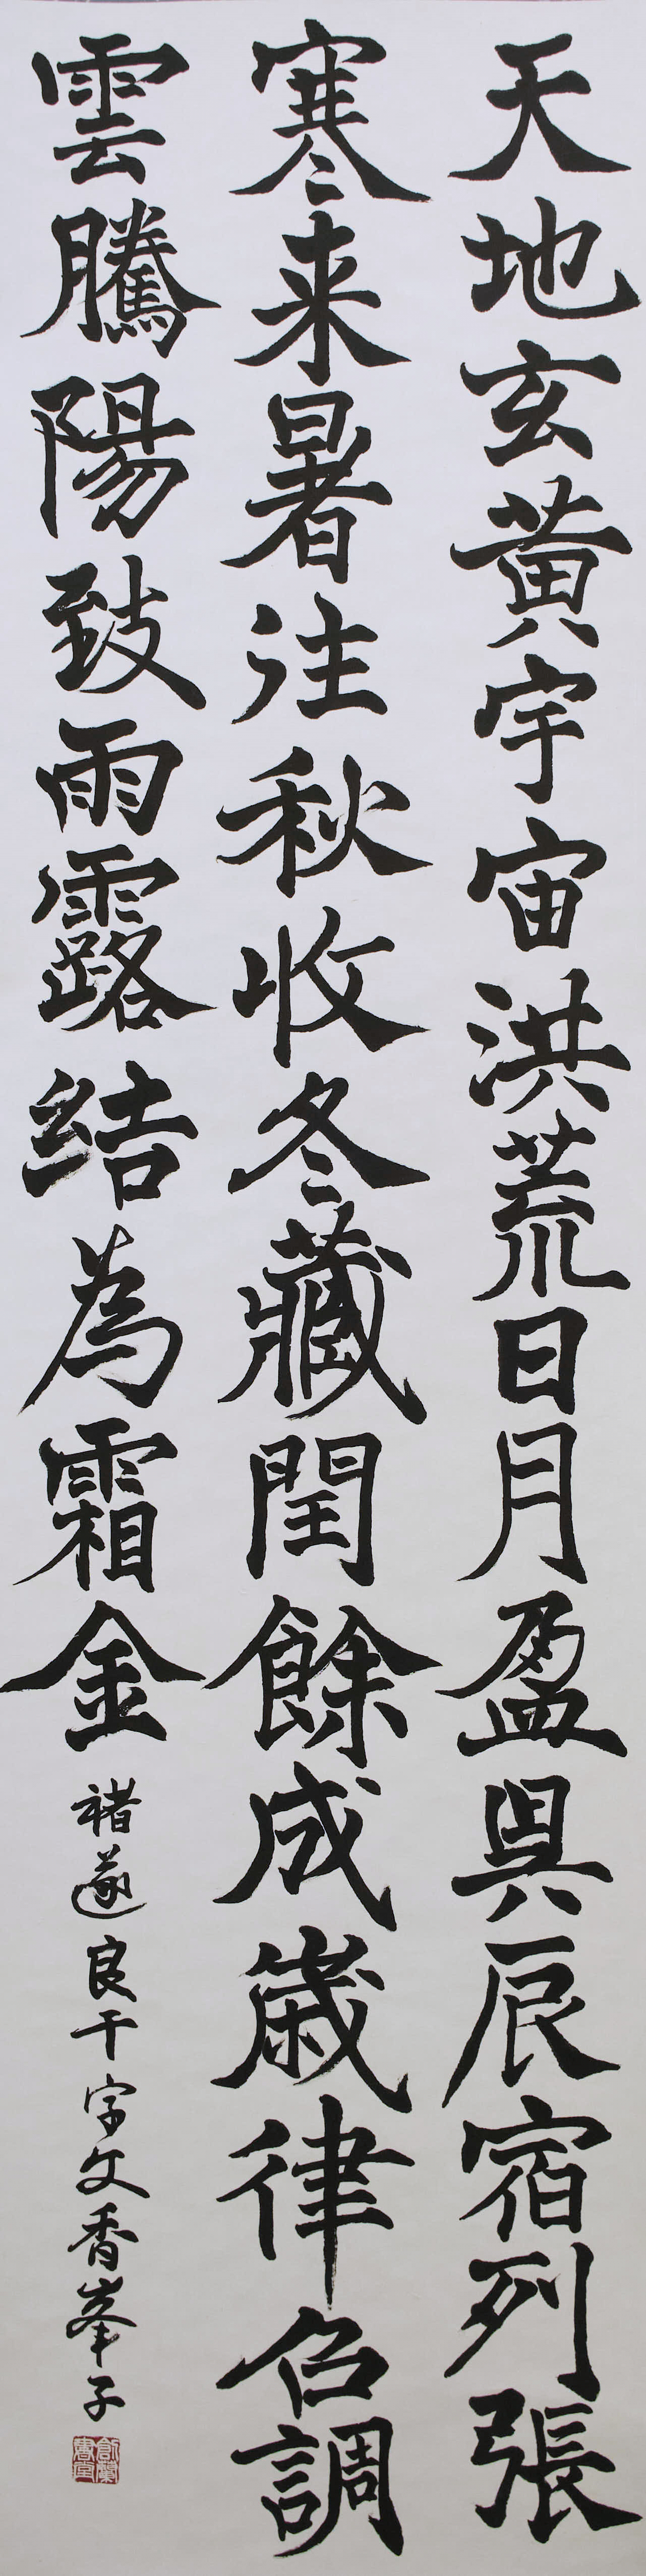 天地玄黃宇宙洪荒日月盈昃辰宿列張
寒来暑往秋收冬藏閏餘成歲律召調
雲騰陽致雨露結為霜金
褚遂良千字文香峯子